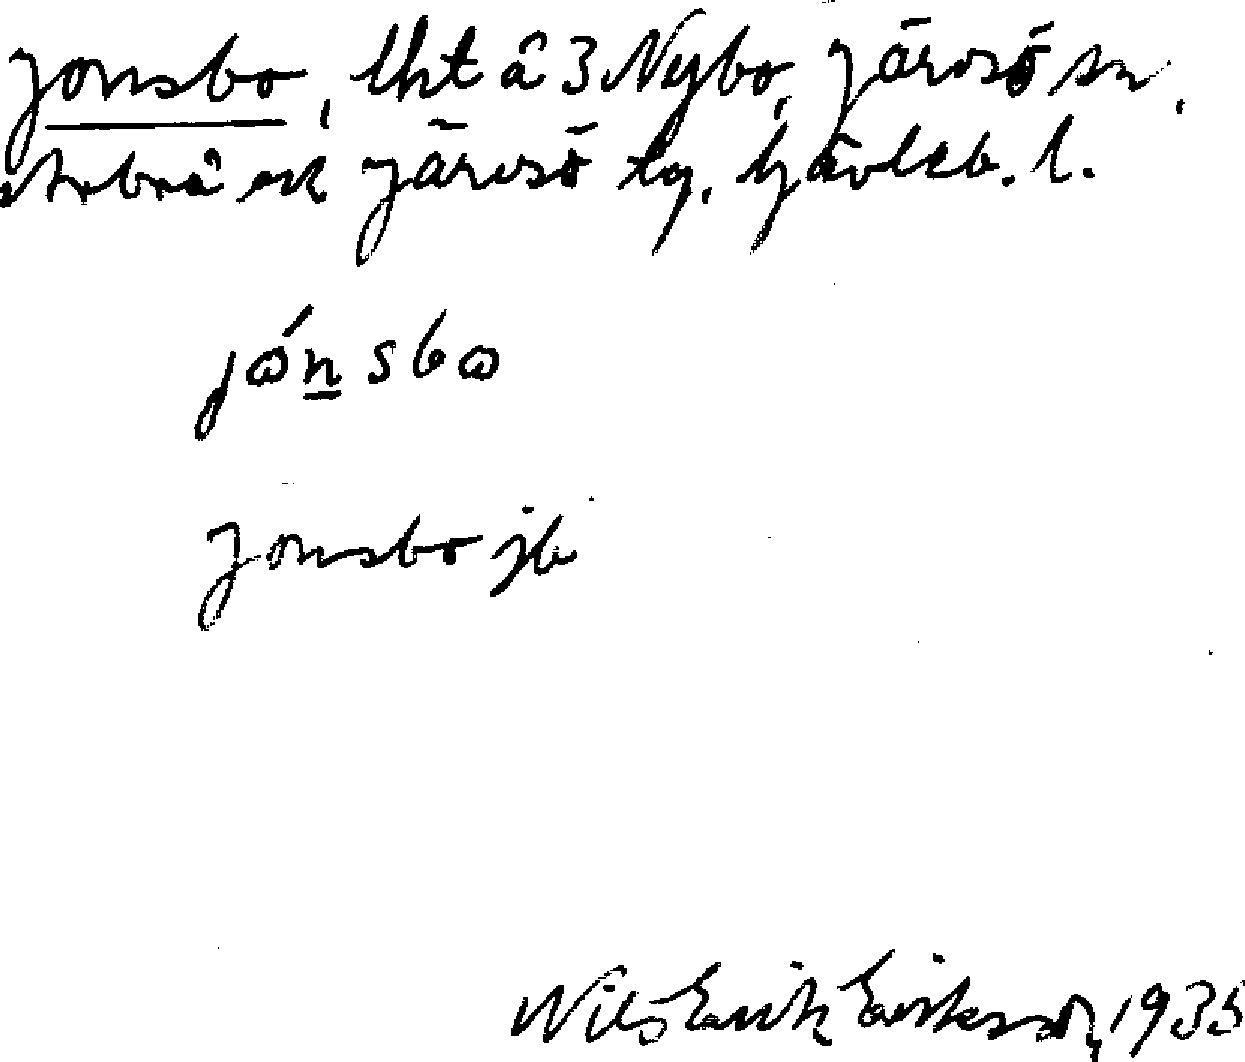 Jonsbo, lht å 3 Nybo, Järvsö sn,
Järvsö tg. Gävleb. l.
jónsbo
Jonsbo jb
Nils Erik Eriksson, 1935